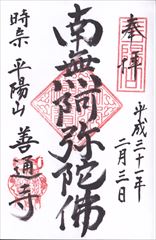 奉拝
平成三十一年
二月三日
南無阿弥陀佛
時宗 平陽山
善通寺